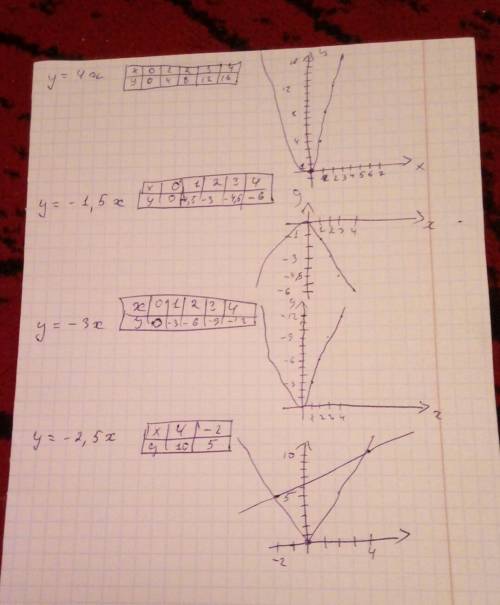 y = 4x
x 0 1 2 3 4
y 0 4 8 12 16
y
x
y = -1,5x
x 0 1 2 3 4
y 0 -1,5 -3 -4,5 -6
y
x
1 2 3 4
-1
-3
-4,5
-6
y = -3x
x 0 1 2 3 4
y 0 -3 -6 -9 -12
y
-12
-9
-6
1 2 3 4
x
y = -2,5x
x 4 -2
y 10 5
10
5
-2
4